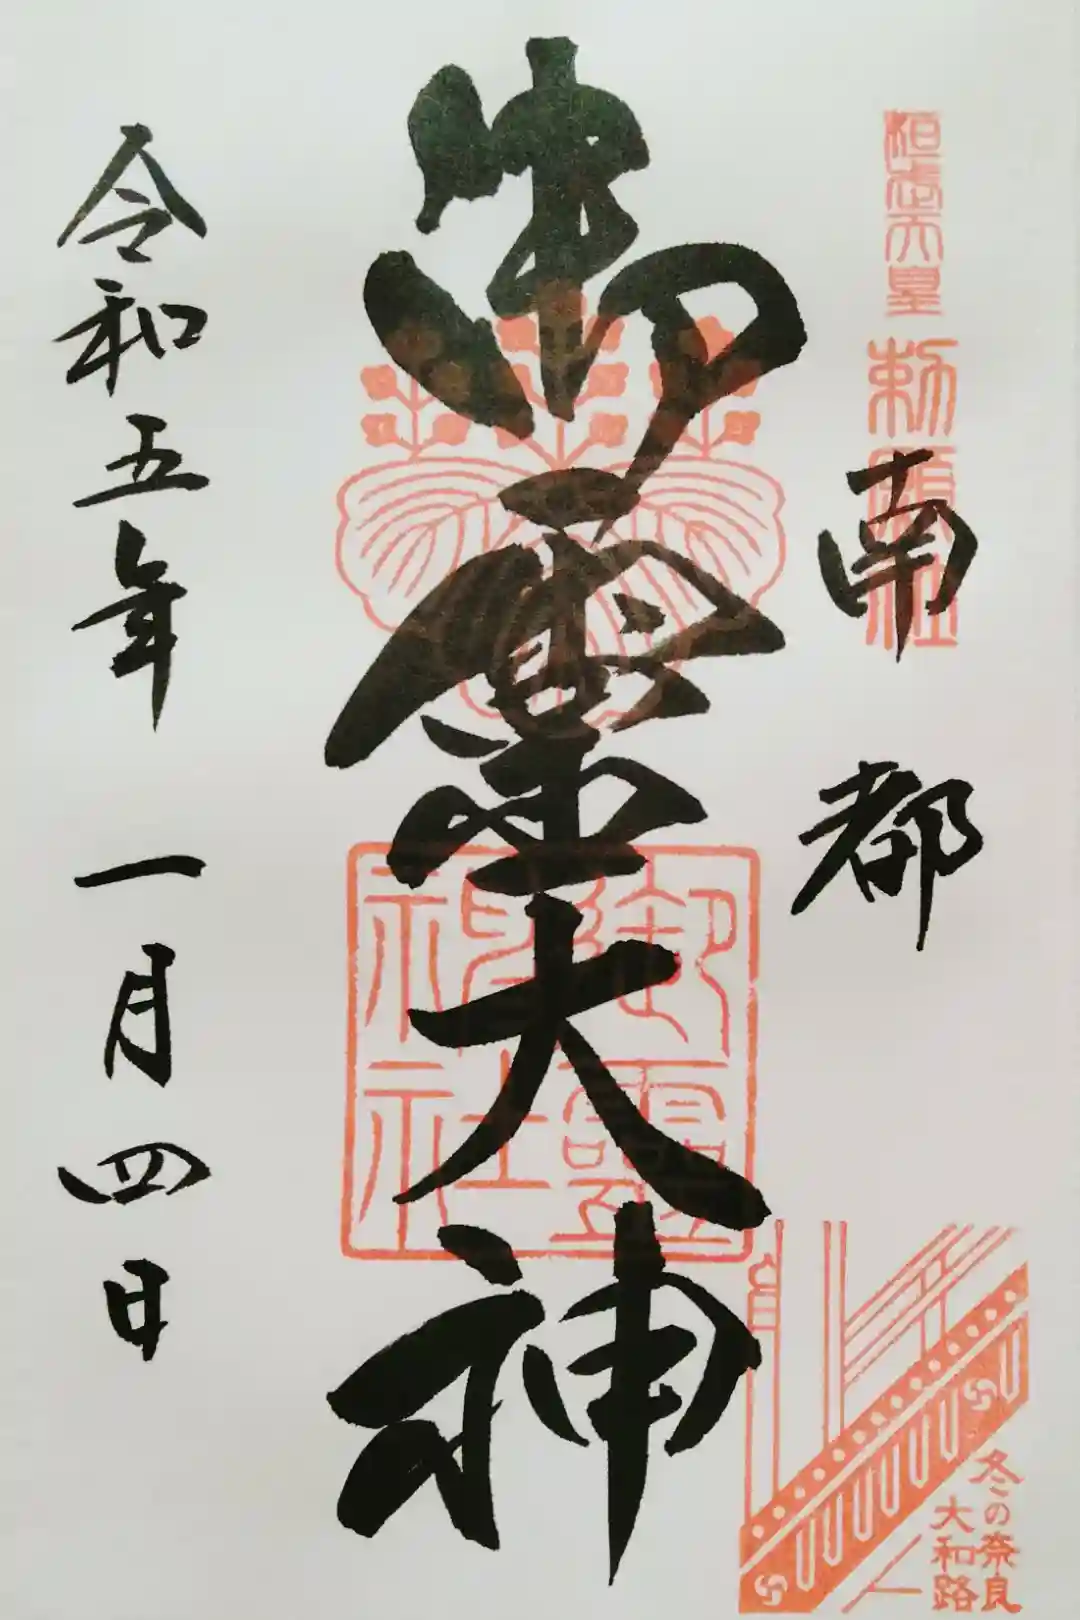 桓武天皇
勅願社
南都
御霊大神
御霊
神社
令和五年一月四日
冬の奈良
大和路